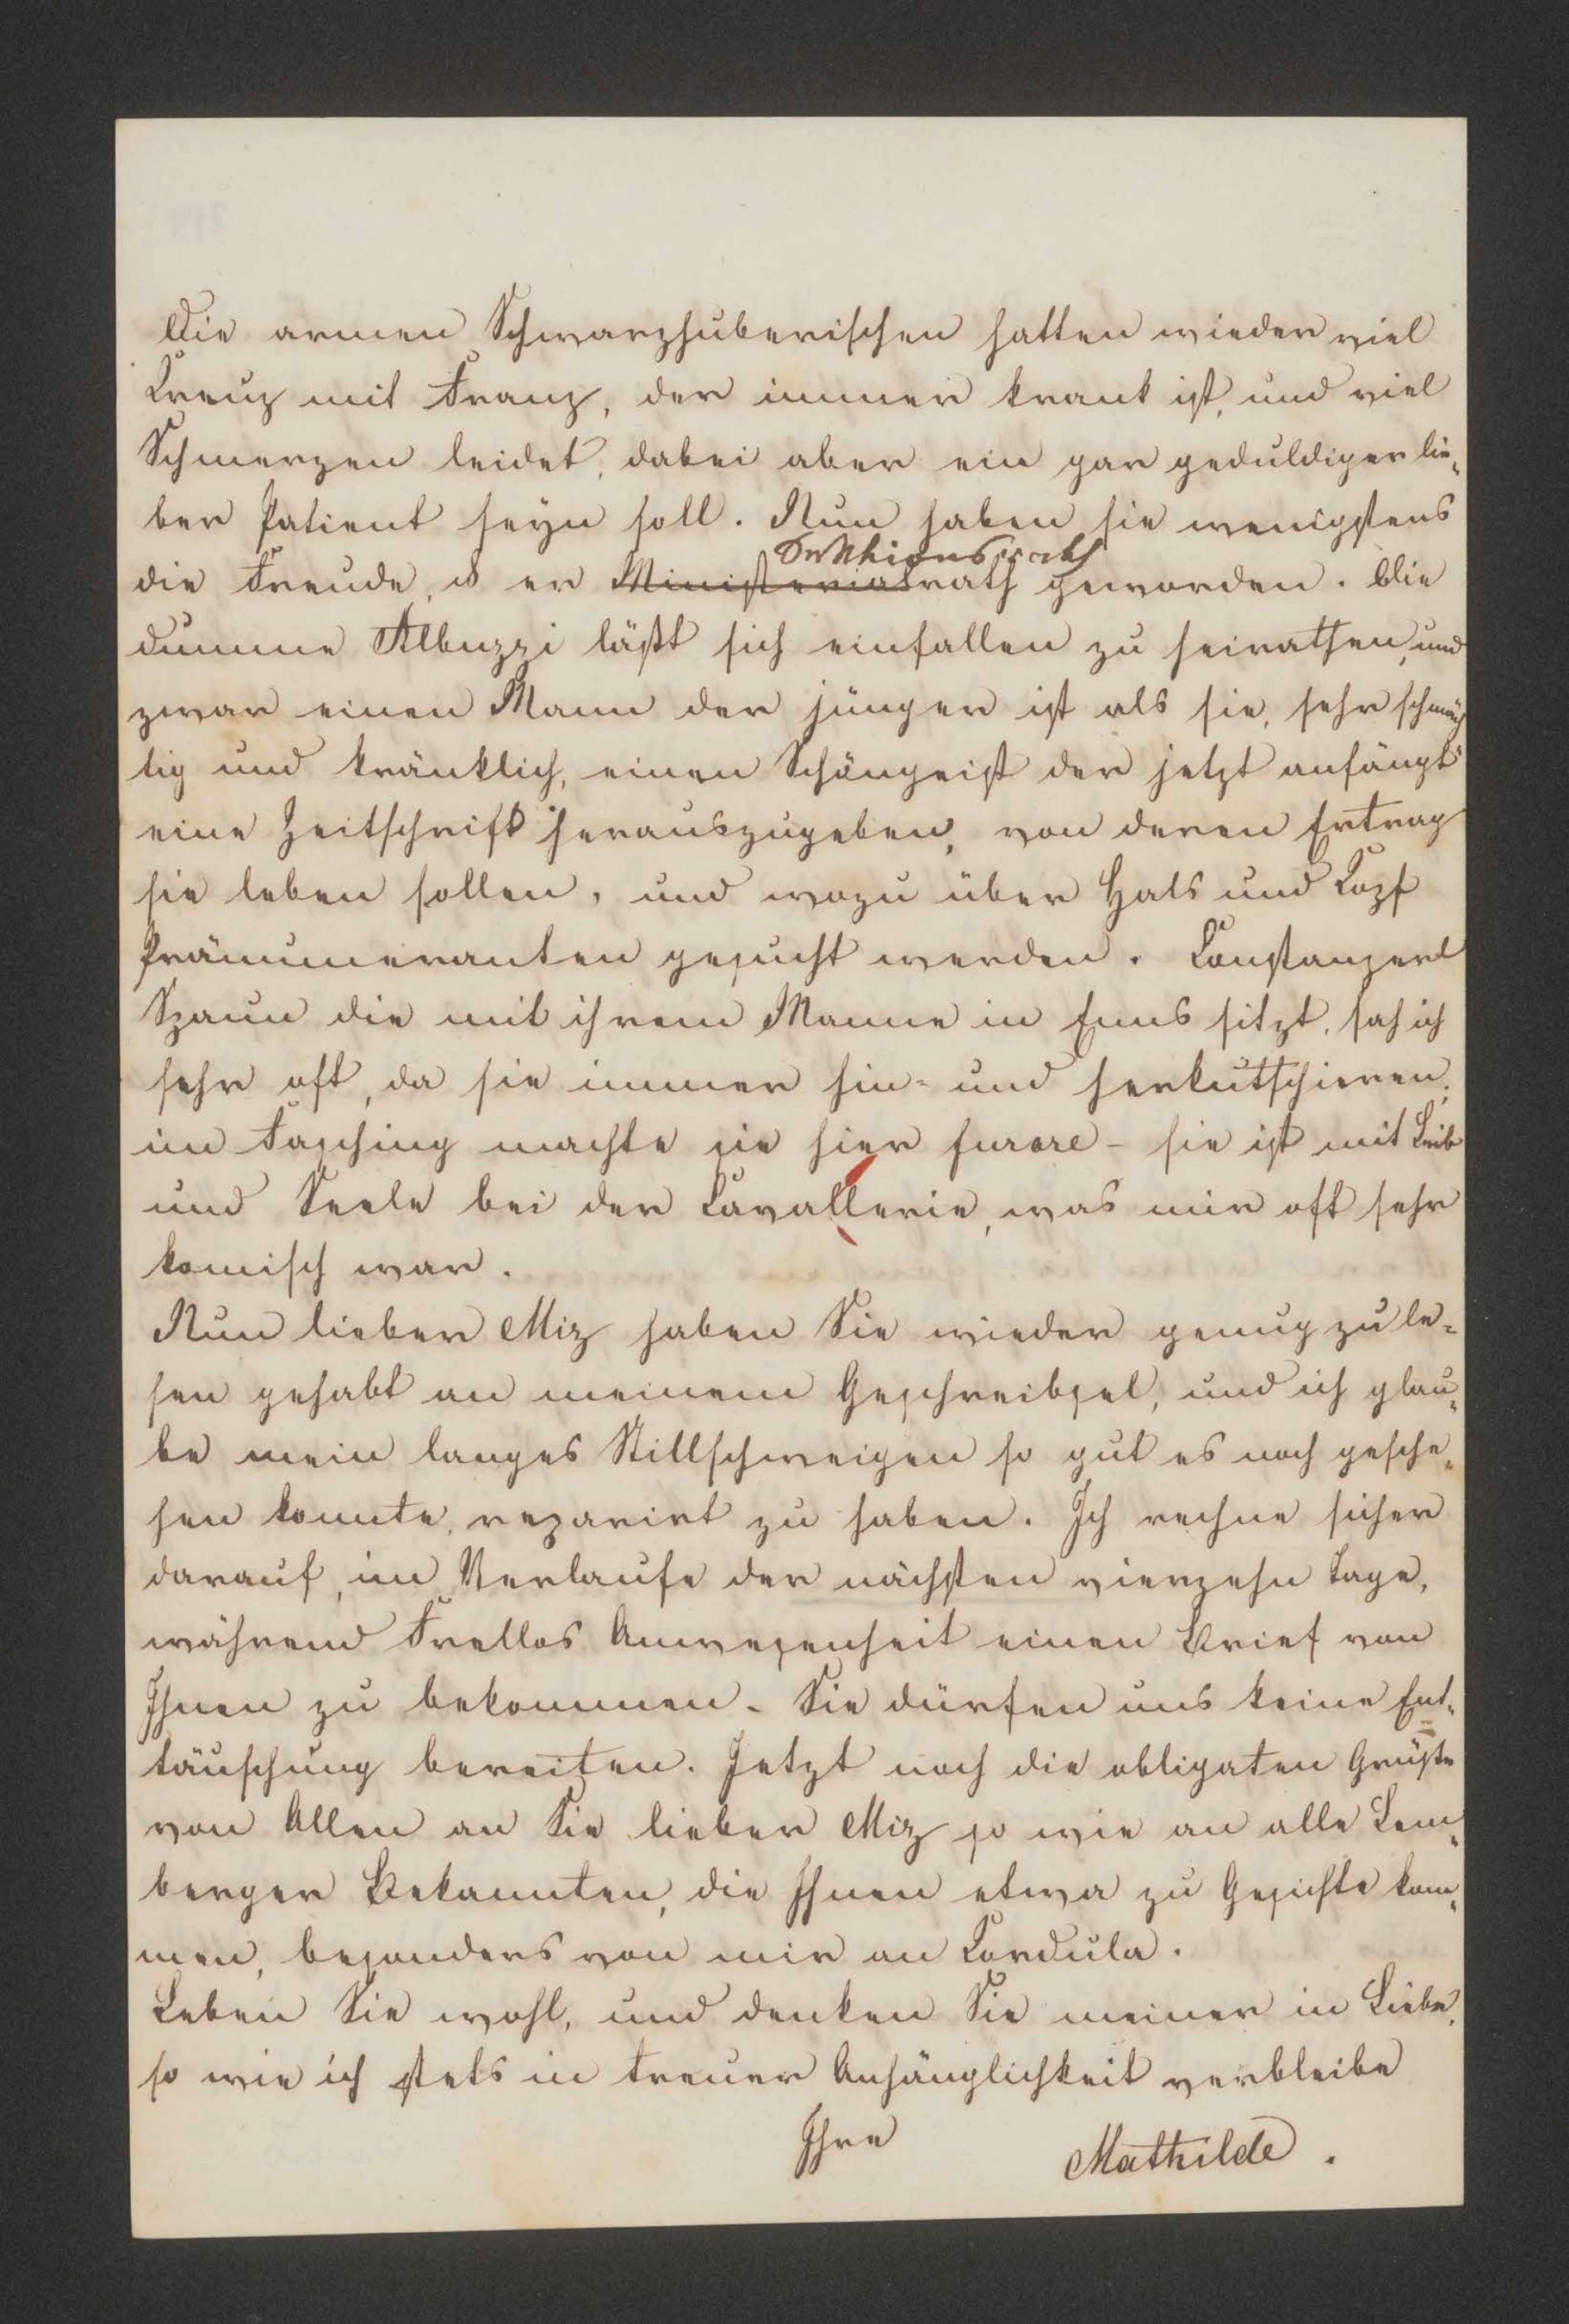 Die armen Schwarzhuberischen hatten wieder viel
Kreuz mit Franz, der immer krank ist, und viel
Schmerzen leidet, dabei aber ein gar geduldiger lie„
ber Patient seyn soll. Nun haben sie wenigstens
Sektionsrath
die Freude, ds er Ministerialrath geworden. Die
dumme Albuzzi läßt sich einfallen zu heirathen, und
zwar einen Mann der jünger ist als sie, sehr schmäch
tig und kränklich, einen Schöngeist der jetzt anfängt
eine Zeitschrift herauszugeben, von deren Ertrag
sie leben sollen, und wozu über Hals und Kopf
Pränumeranten gesucht werden. Konstanzerl
Spaun die mit ihrem Manne in Enns sitzt, sah ich
sehr oft, da sie immer hin- und herkutschieren,
im Fasching machte sie hier furore – sie ist mit Leib
und Seele bei der Cavallerie, was mir oft sehr
komisch war.
Nun lieber Miz haben Sie wieder genug zu le-
sen gehabt an meinem Geschreibsel, und ich glau„
be mein langes Stillschweigen so gut es noch gesche„
hen konnte, reparirt zu haben. Ich rechne sicher
darauf, im Verlaufe der nächsten vierzehn Tage,
während Frellos Anwesenheit einen Brief von
Ihnen zu bekommen. Sie dürfen uns keine Ent„
täuschung bereiten. Jetzt noch die obligaten Grüße
von Allen an Sie lieber Miz so wie an alle Lem„
berger Bekannten, die Ihnen etwa zu Gesichte kom„
men, besonders von mir an Cordula.
Leben Sie wohl, und denken Sie meiner in Liebe,
so wie ich stets in treuer Anhänglichkeit verbleibe
Ihre Mathilde.